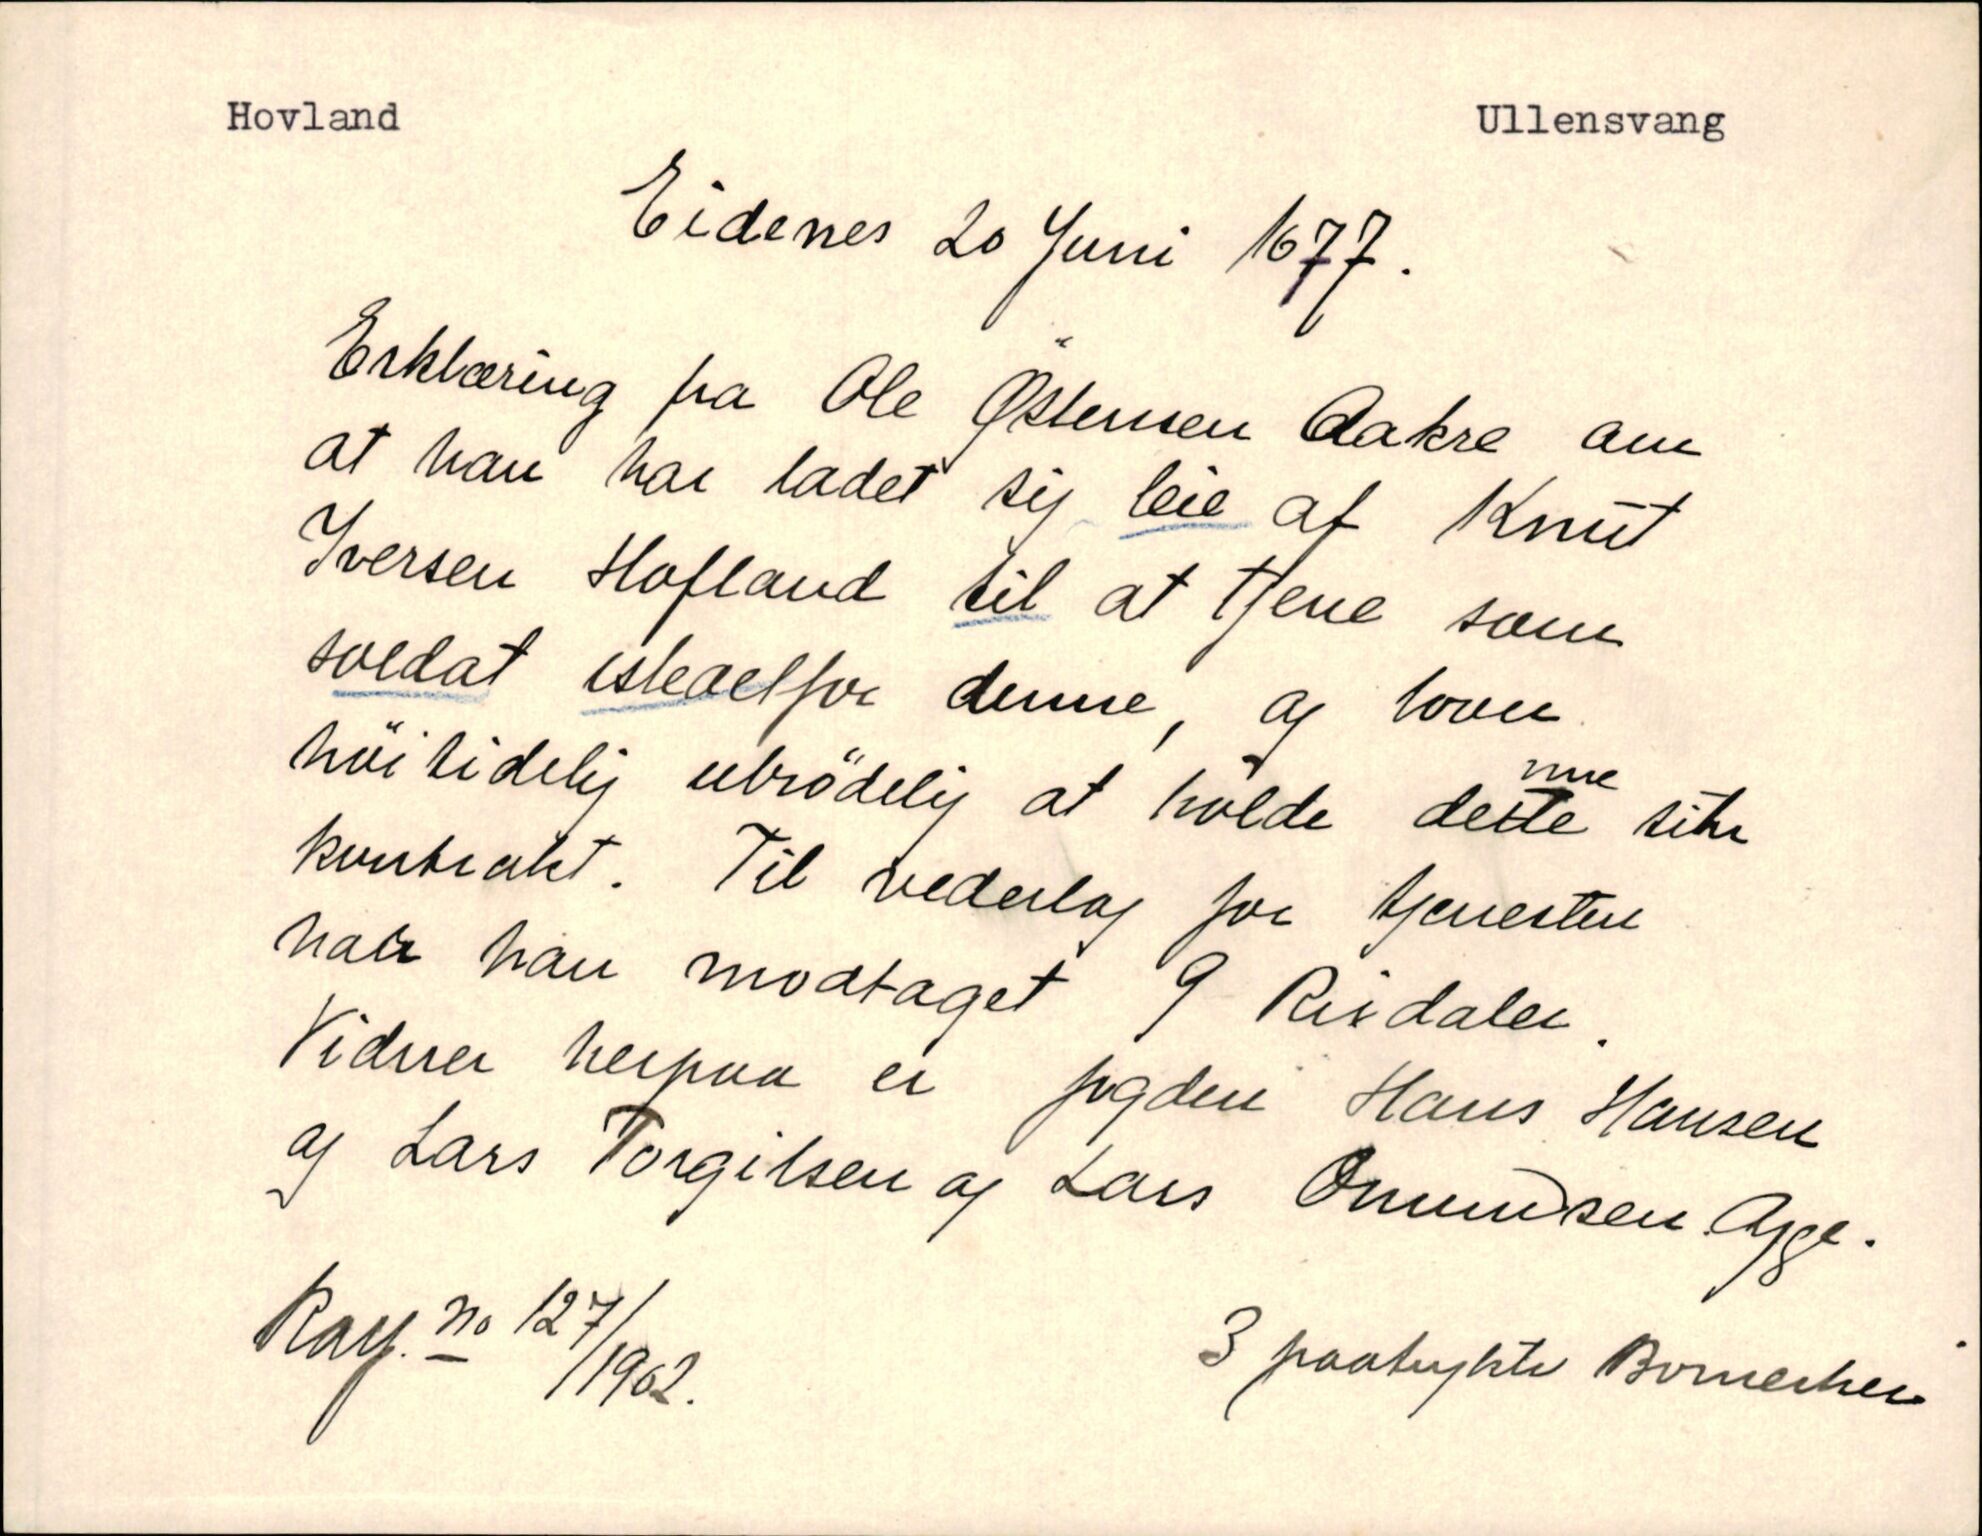 Hovland Ullensvang
Eidenes 20 Juni 1677.
Erklæring fra Ole Östensen Aakre om
at han har ladet sig leie af Knut
Iversen Hofland til at tjene som
soldat istedetfor denne, og lover
höitidelig ubrödelig at holde dette nne sin
kontrakt. Til vederlag for tjenesten
har han modtaget 9 Rixdaler.
Vidner herpaa er fogden Hans Hansen
og Lars Torgilsen og Lars Omundsen Agge.
Kay. no 127/1902.
3 paatrykte Bomerker